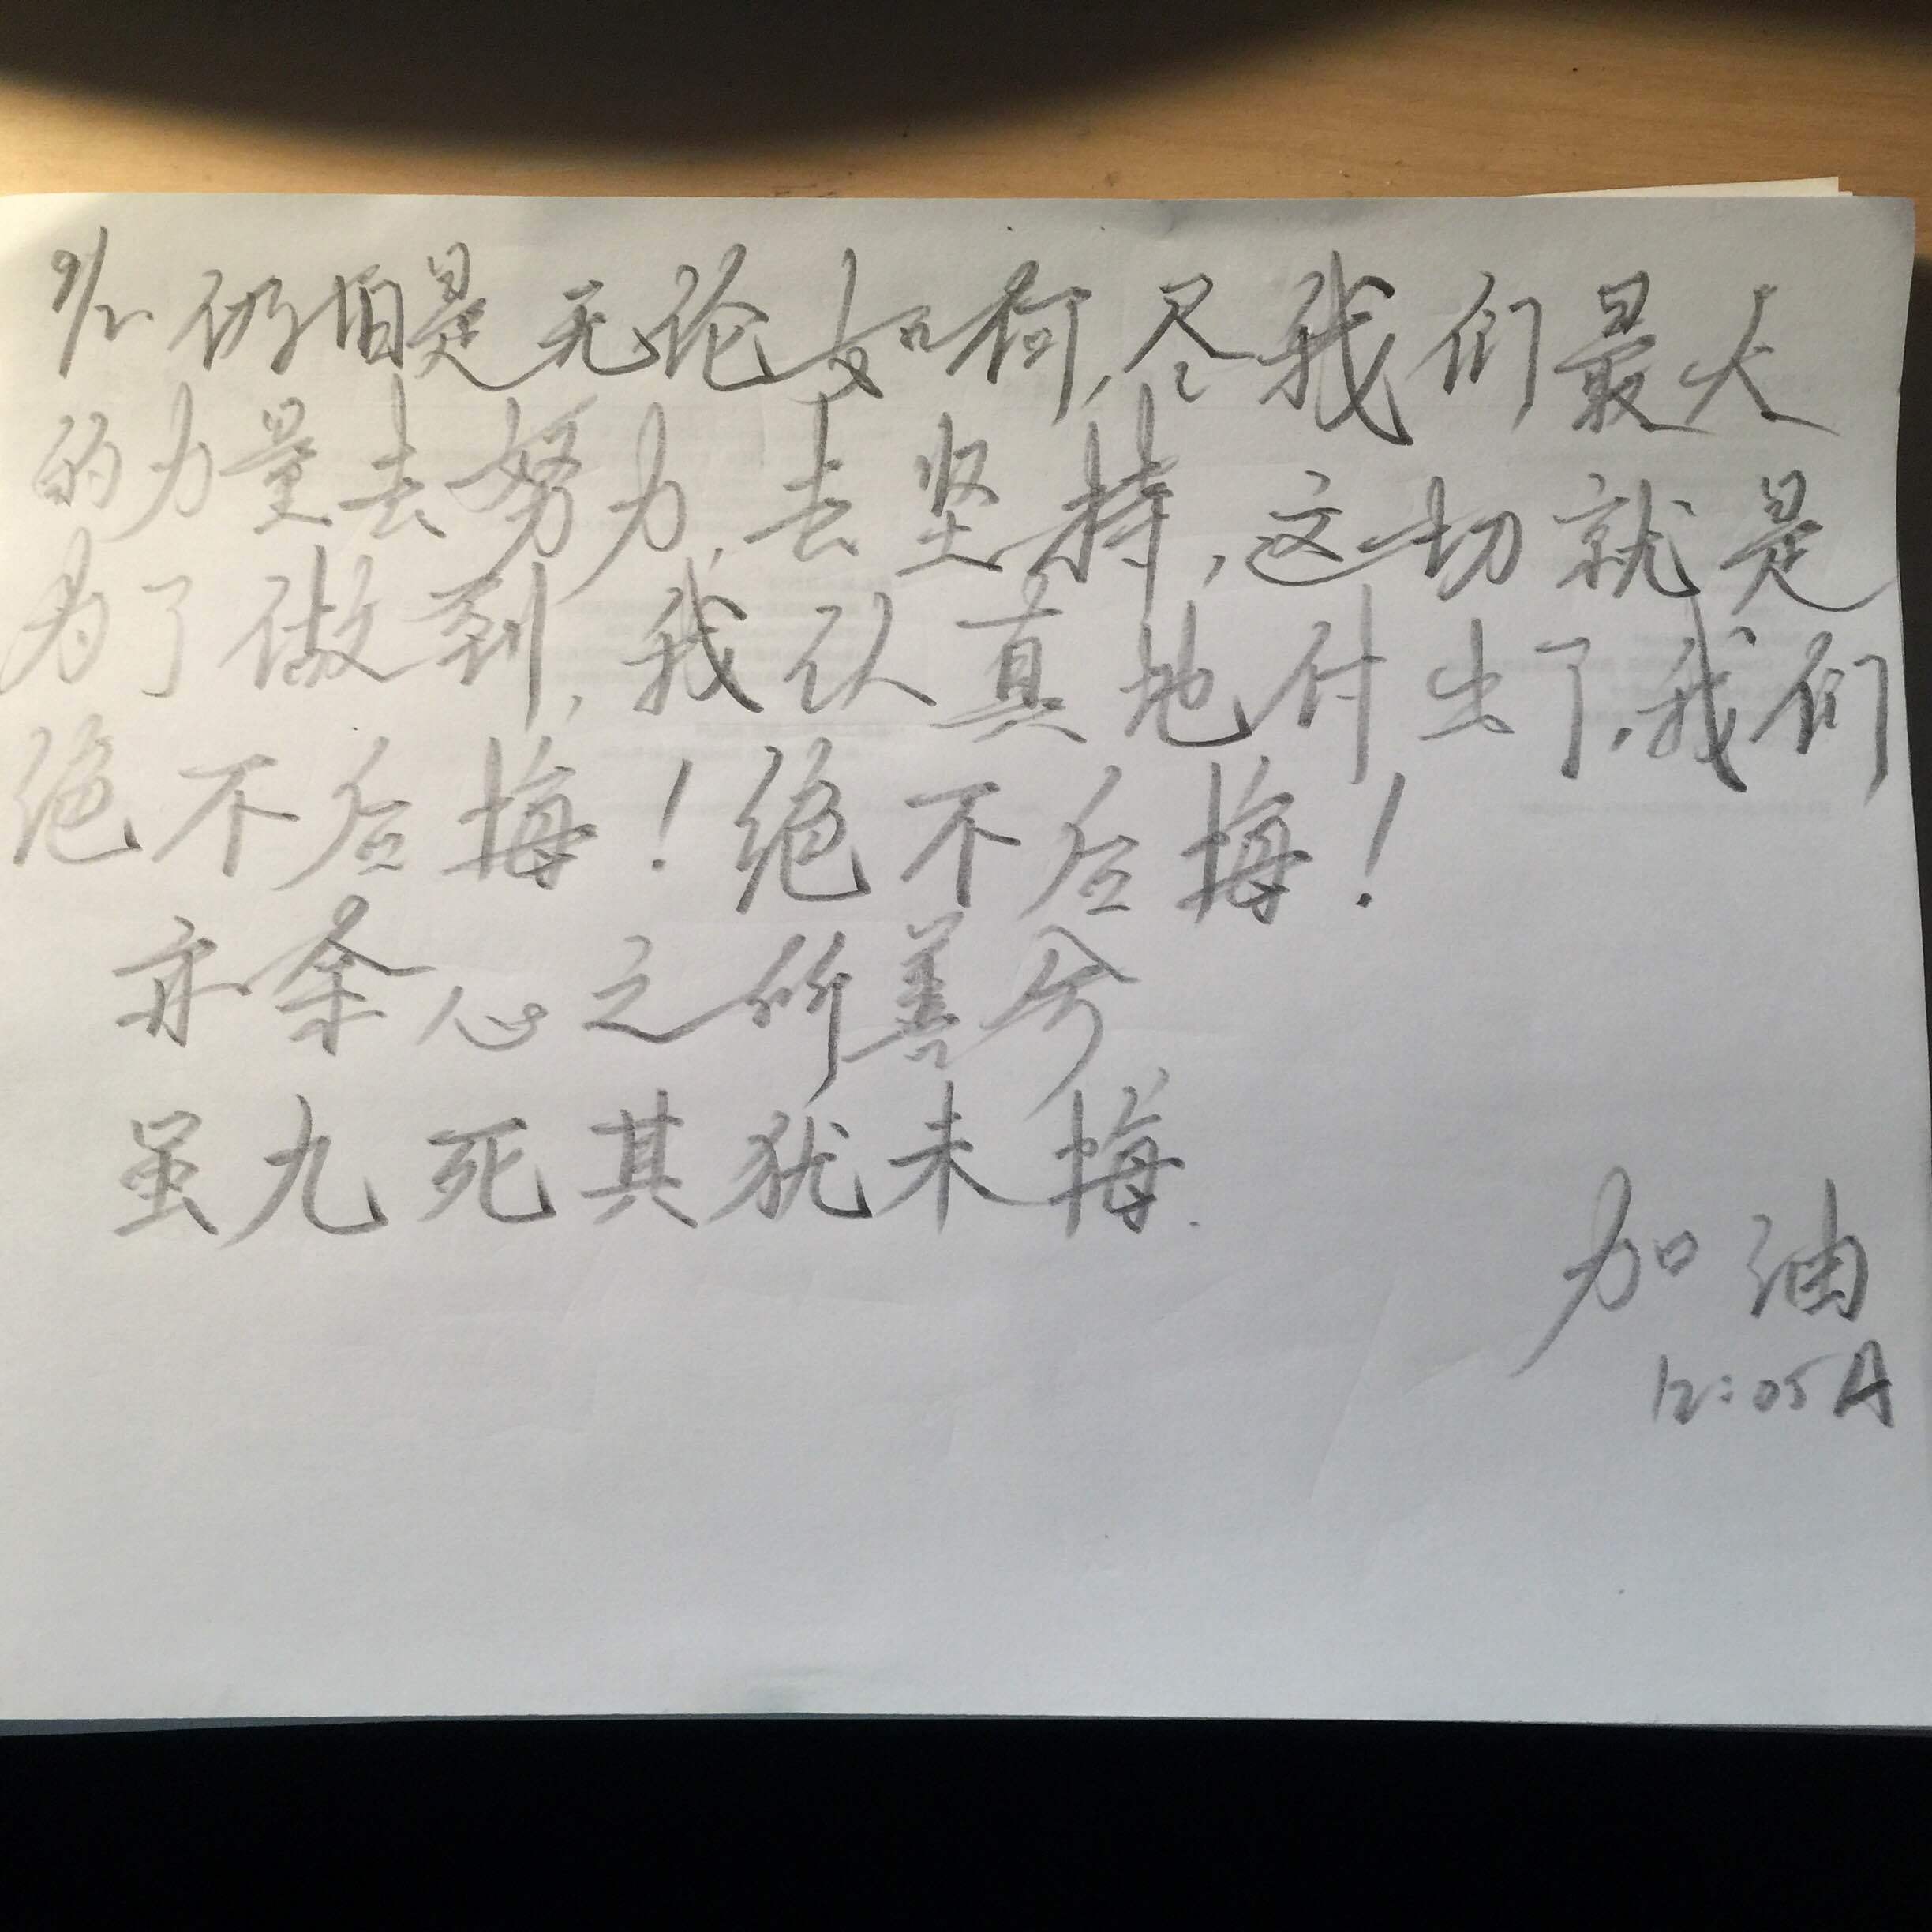 9/2. 仍旧是无论如何,尽我们最大
的力量去努力,去坚持,这一切就是
为了做到,我认真地付出了,我们
绝不后悔!绝不后悔!
亦余心之所善兮
虽九死其犹未悔.
加油
12:05A